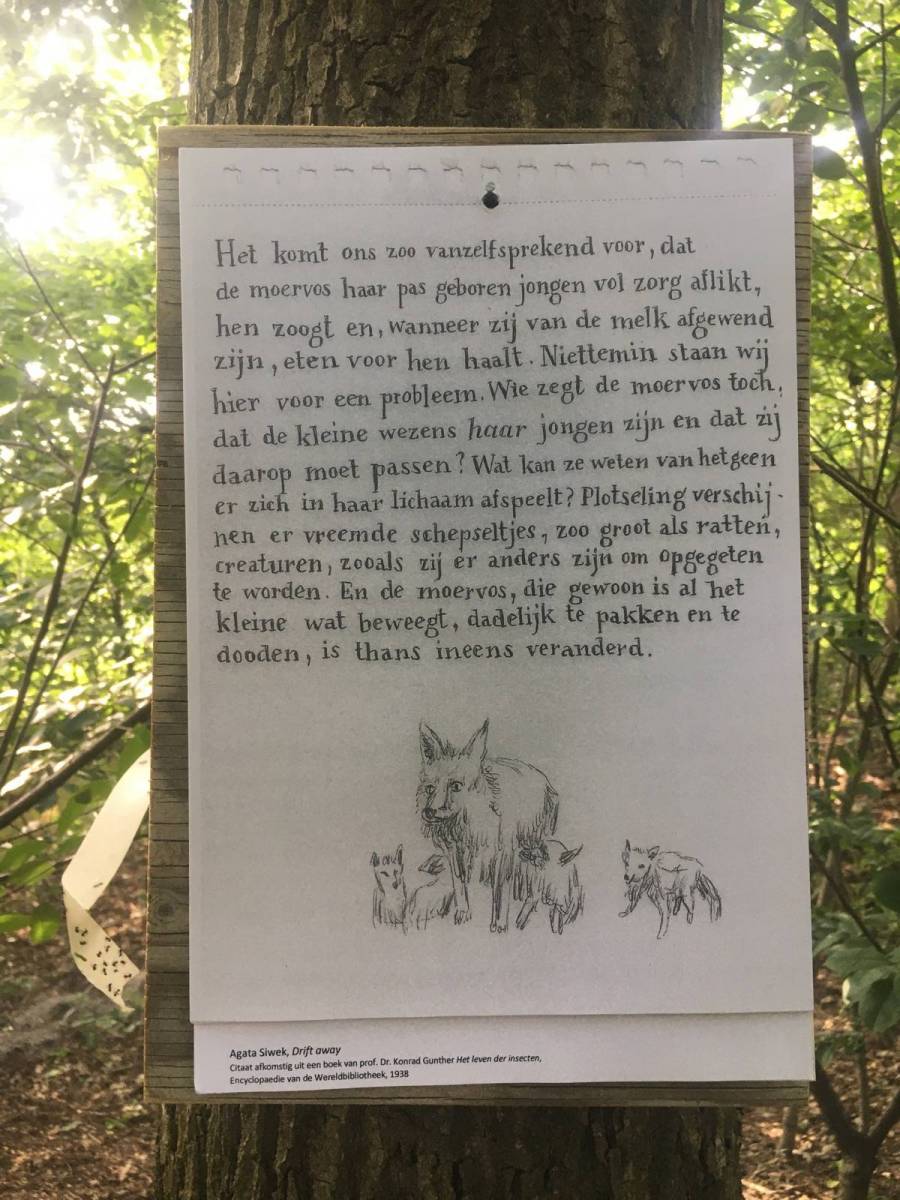 Het komt ons zoo vanzelfsprekend voor, dat
de moervos haar pas geboren jongen vol zorg aflikt,
hen zoogt en, wanneer zij van de melk afgewend
zijn, eten voor hen haalt. Niettemin staan wij
hier voor een probleem. Wie zegt de moervos toch,
dat de kleine wezens haar jongen zijn en dat zij
daarop moet passen? Wat kan ze weten van hetgeen
er zich in haar lichaam afspeelt? Plotseling verschij-
nen er vreemde schepseltjes, zoo groot als ratten,
creaturen, zooals zij er anders zijn om opgegeten
te worden. En de moervos, die gewoon is al het
kleine wat beweegt, dadelijk te pakken en te
dooden, is thans ineens veranderd.
Agata Siwek, Drift away
Citaat afkomstig uit een boek van prof. Dr. Konrad Gunther Het leven der insecten,
Encyclopaedie van de Wereldbibliotheek, 1938